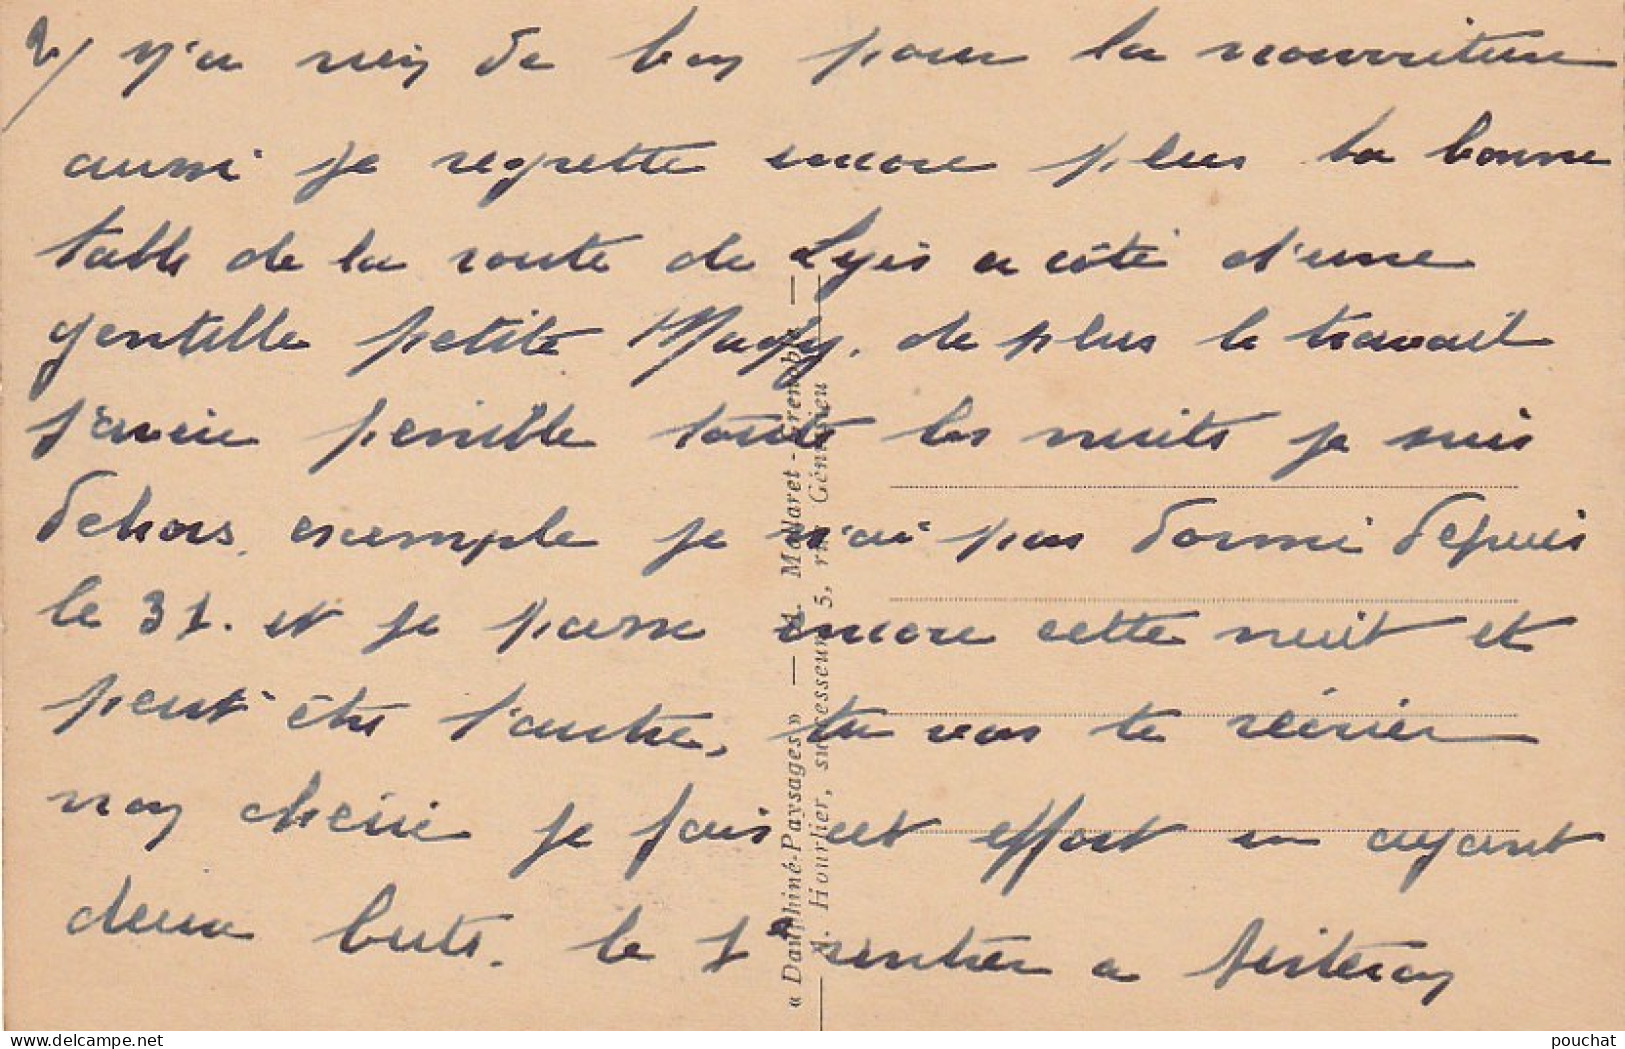 2/ y'a rien de bon pour la nourriture
aussi je regrette encore plus la bonne
table de la route de a côté d'une
gentille petite Mady, de plus le travail
s'avère penible toute les nuits je suis
dehors, exemple je n'ai pas dormi depuis
le 31. et je passe encore cette nuit et
peut être l'autre, tu vas te récrier
mon chérie je fais cet effort en ayant
deux buts. le 1er rentrer a Sisteron
« Dauphiné-Paysages » — M. Mollaret - Grenoble —
A. Hourlier, successeur 5, rue Génissieu
pouchat